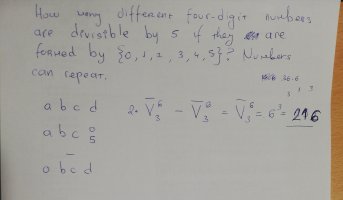 How many different four-digit numbers
are divisible by 5 if they are
formed by {0, 1, 2, 3, 4, 5}? Numbers
can repeat.
36.6
3 3 3
a b c d
2· V̅₃⁶ − V̅₃⁶ = V̅₃⁶ = 6³ = 216
a b c 0
5
0 b c d